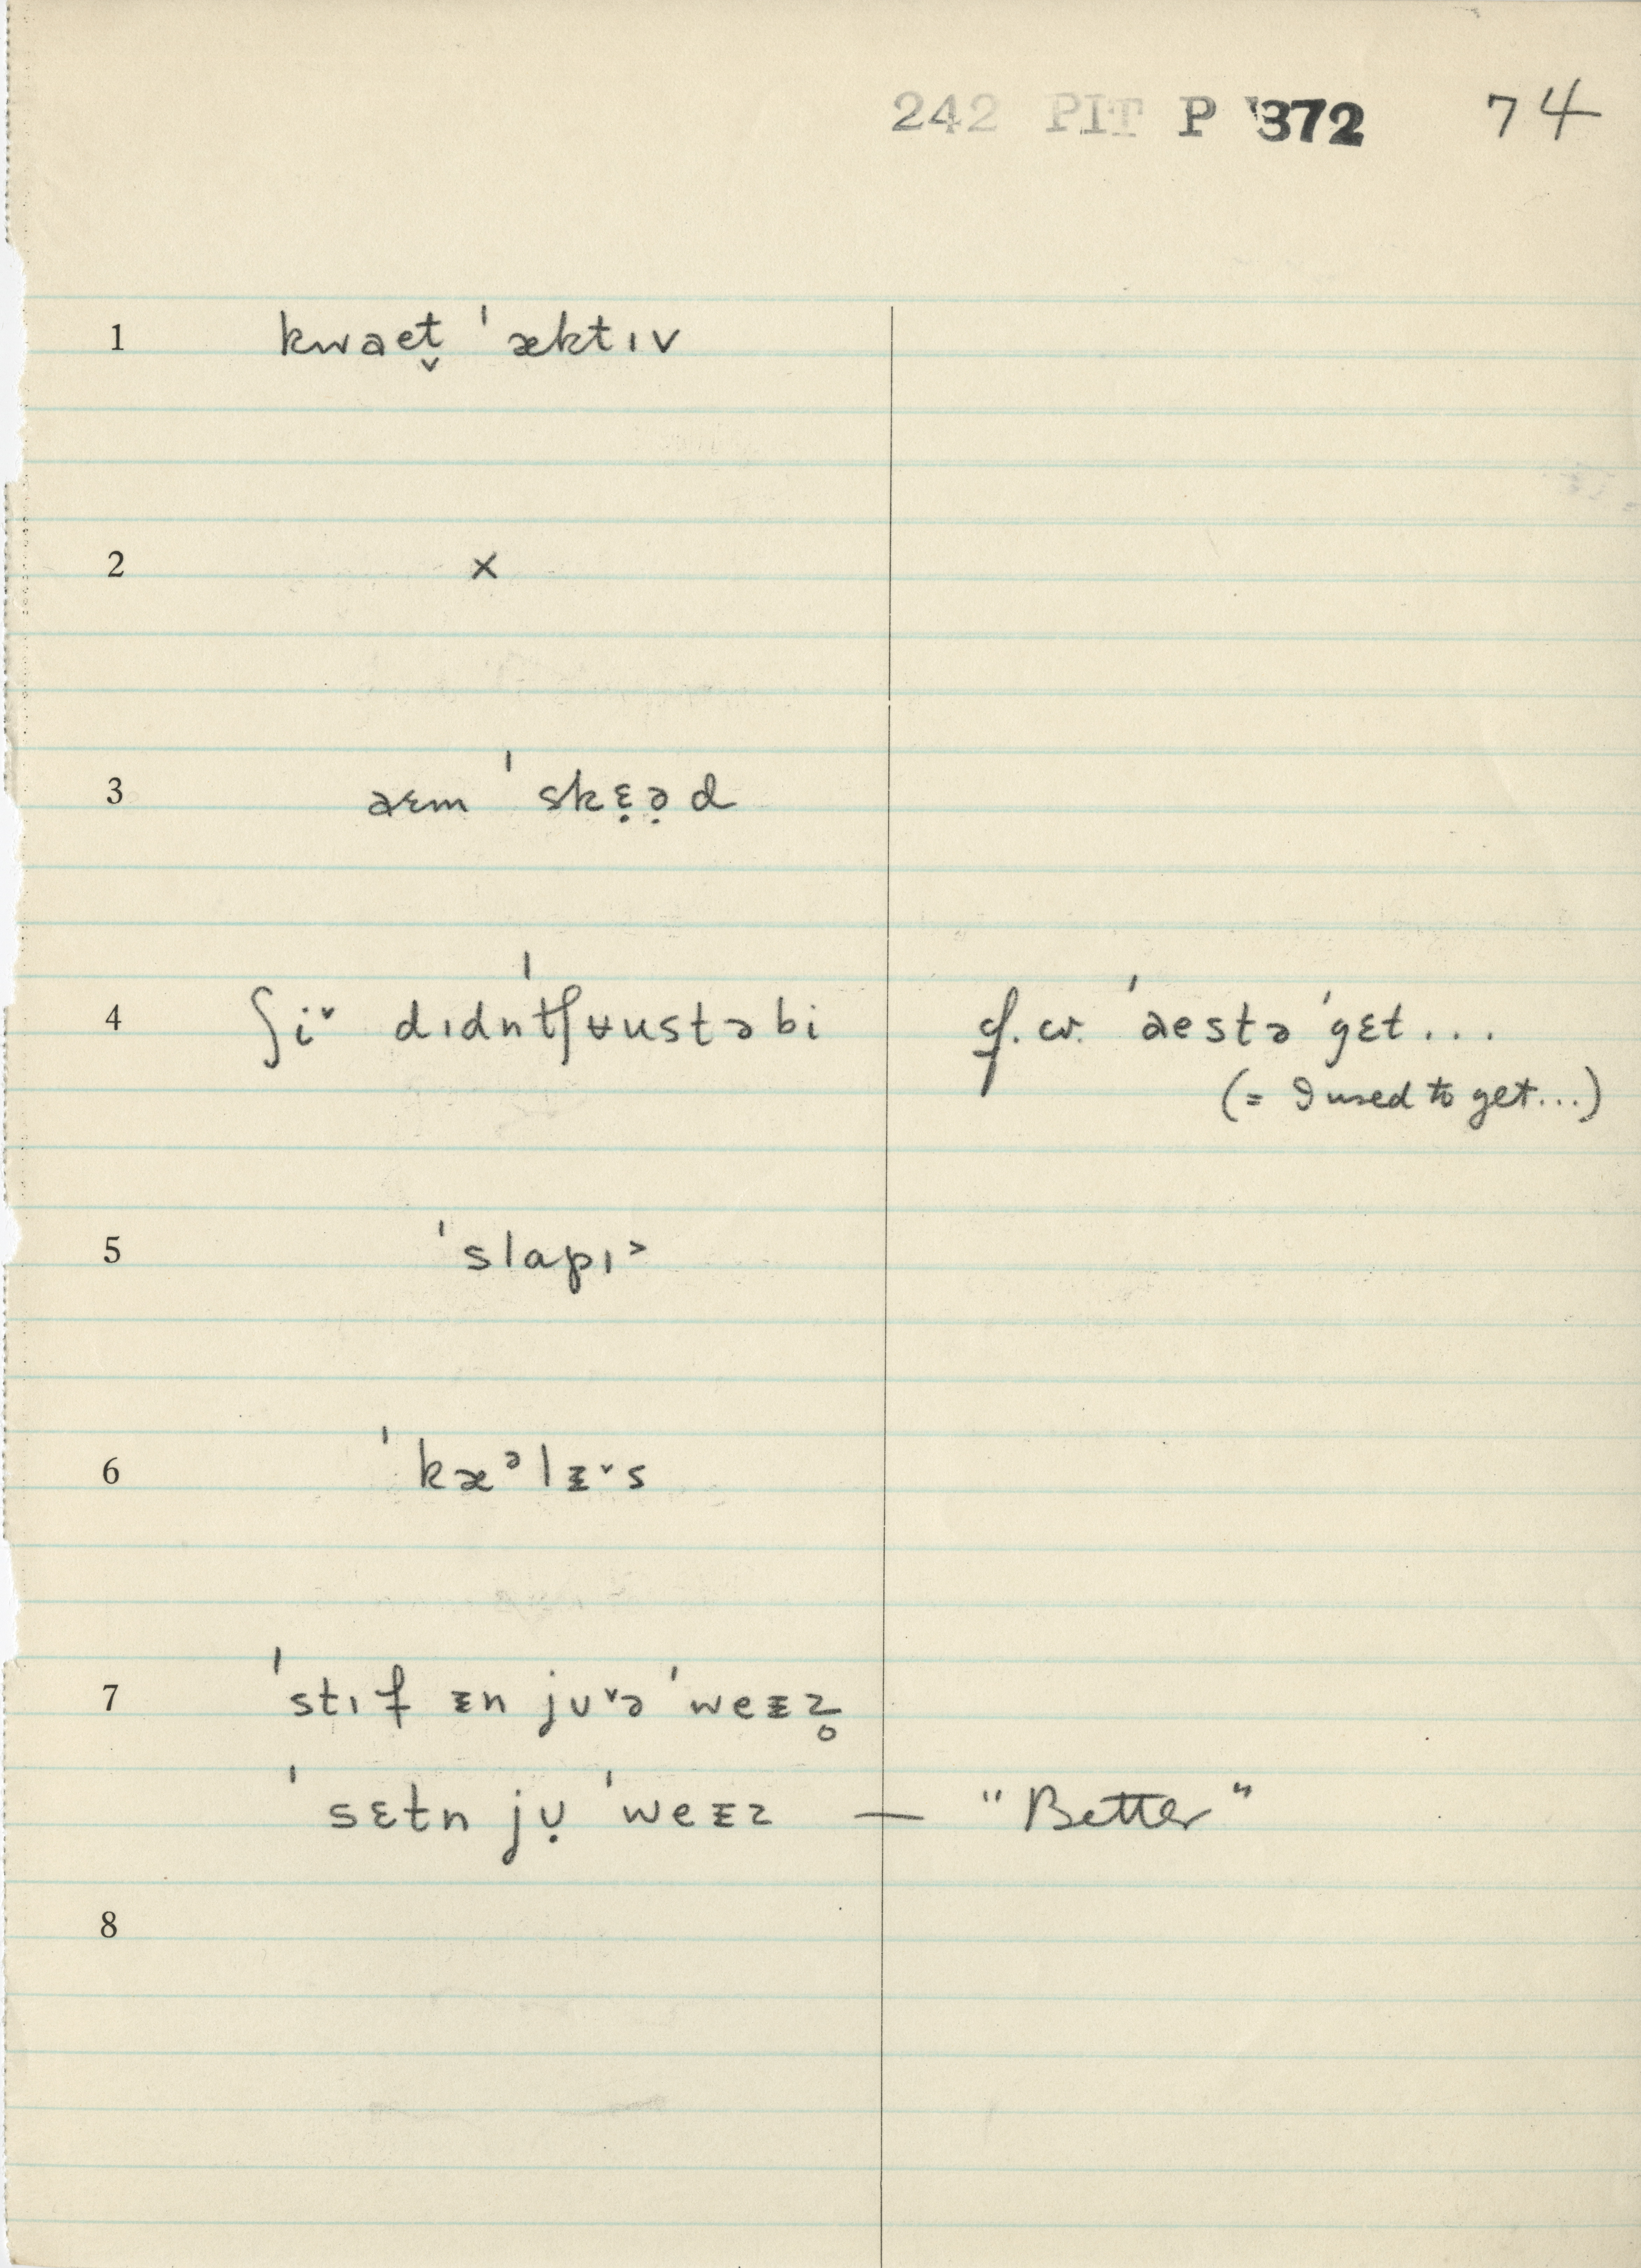 242 PIT P 372 74
1 kwaet̬ ˈæktɪv
2 ×
3 aɛm ˈskɛ̣ə̣d
4 ʃi˅ dɪdn̍tʃʉustəbi cf. cv. ˈaestə ˈgɛt...
(= I used to get...)
5 ˈslapɪ˃
6 ˈkæᵊlᵻ˅s
7 ˈstɪf ᵻn jʊ˅ə ˈweᵻz̥
ˈsɛtn jʊ̣ ˈweᵻz — "Better"
8